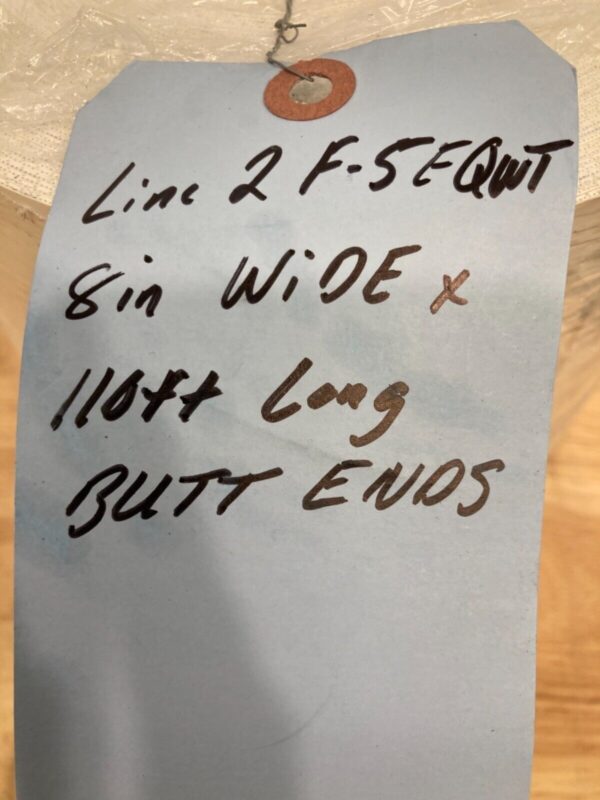 Line 2 F-5EQWT
8in WiDE x
110ft Long
BUTT ENDS